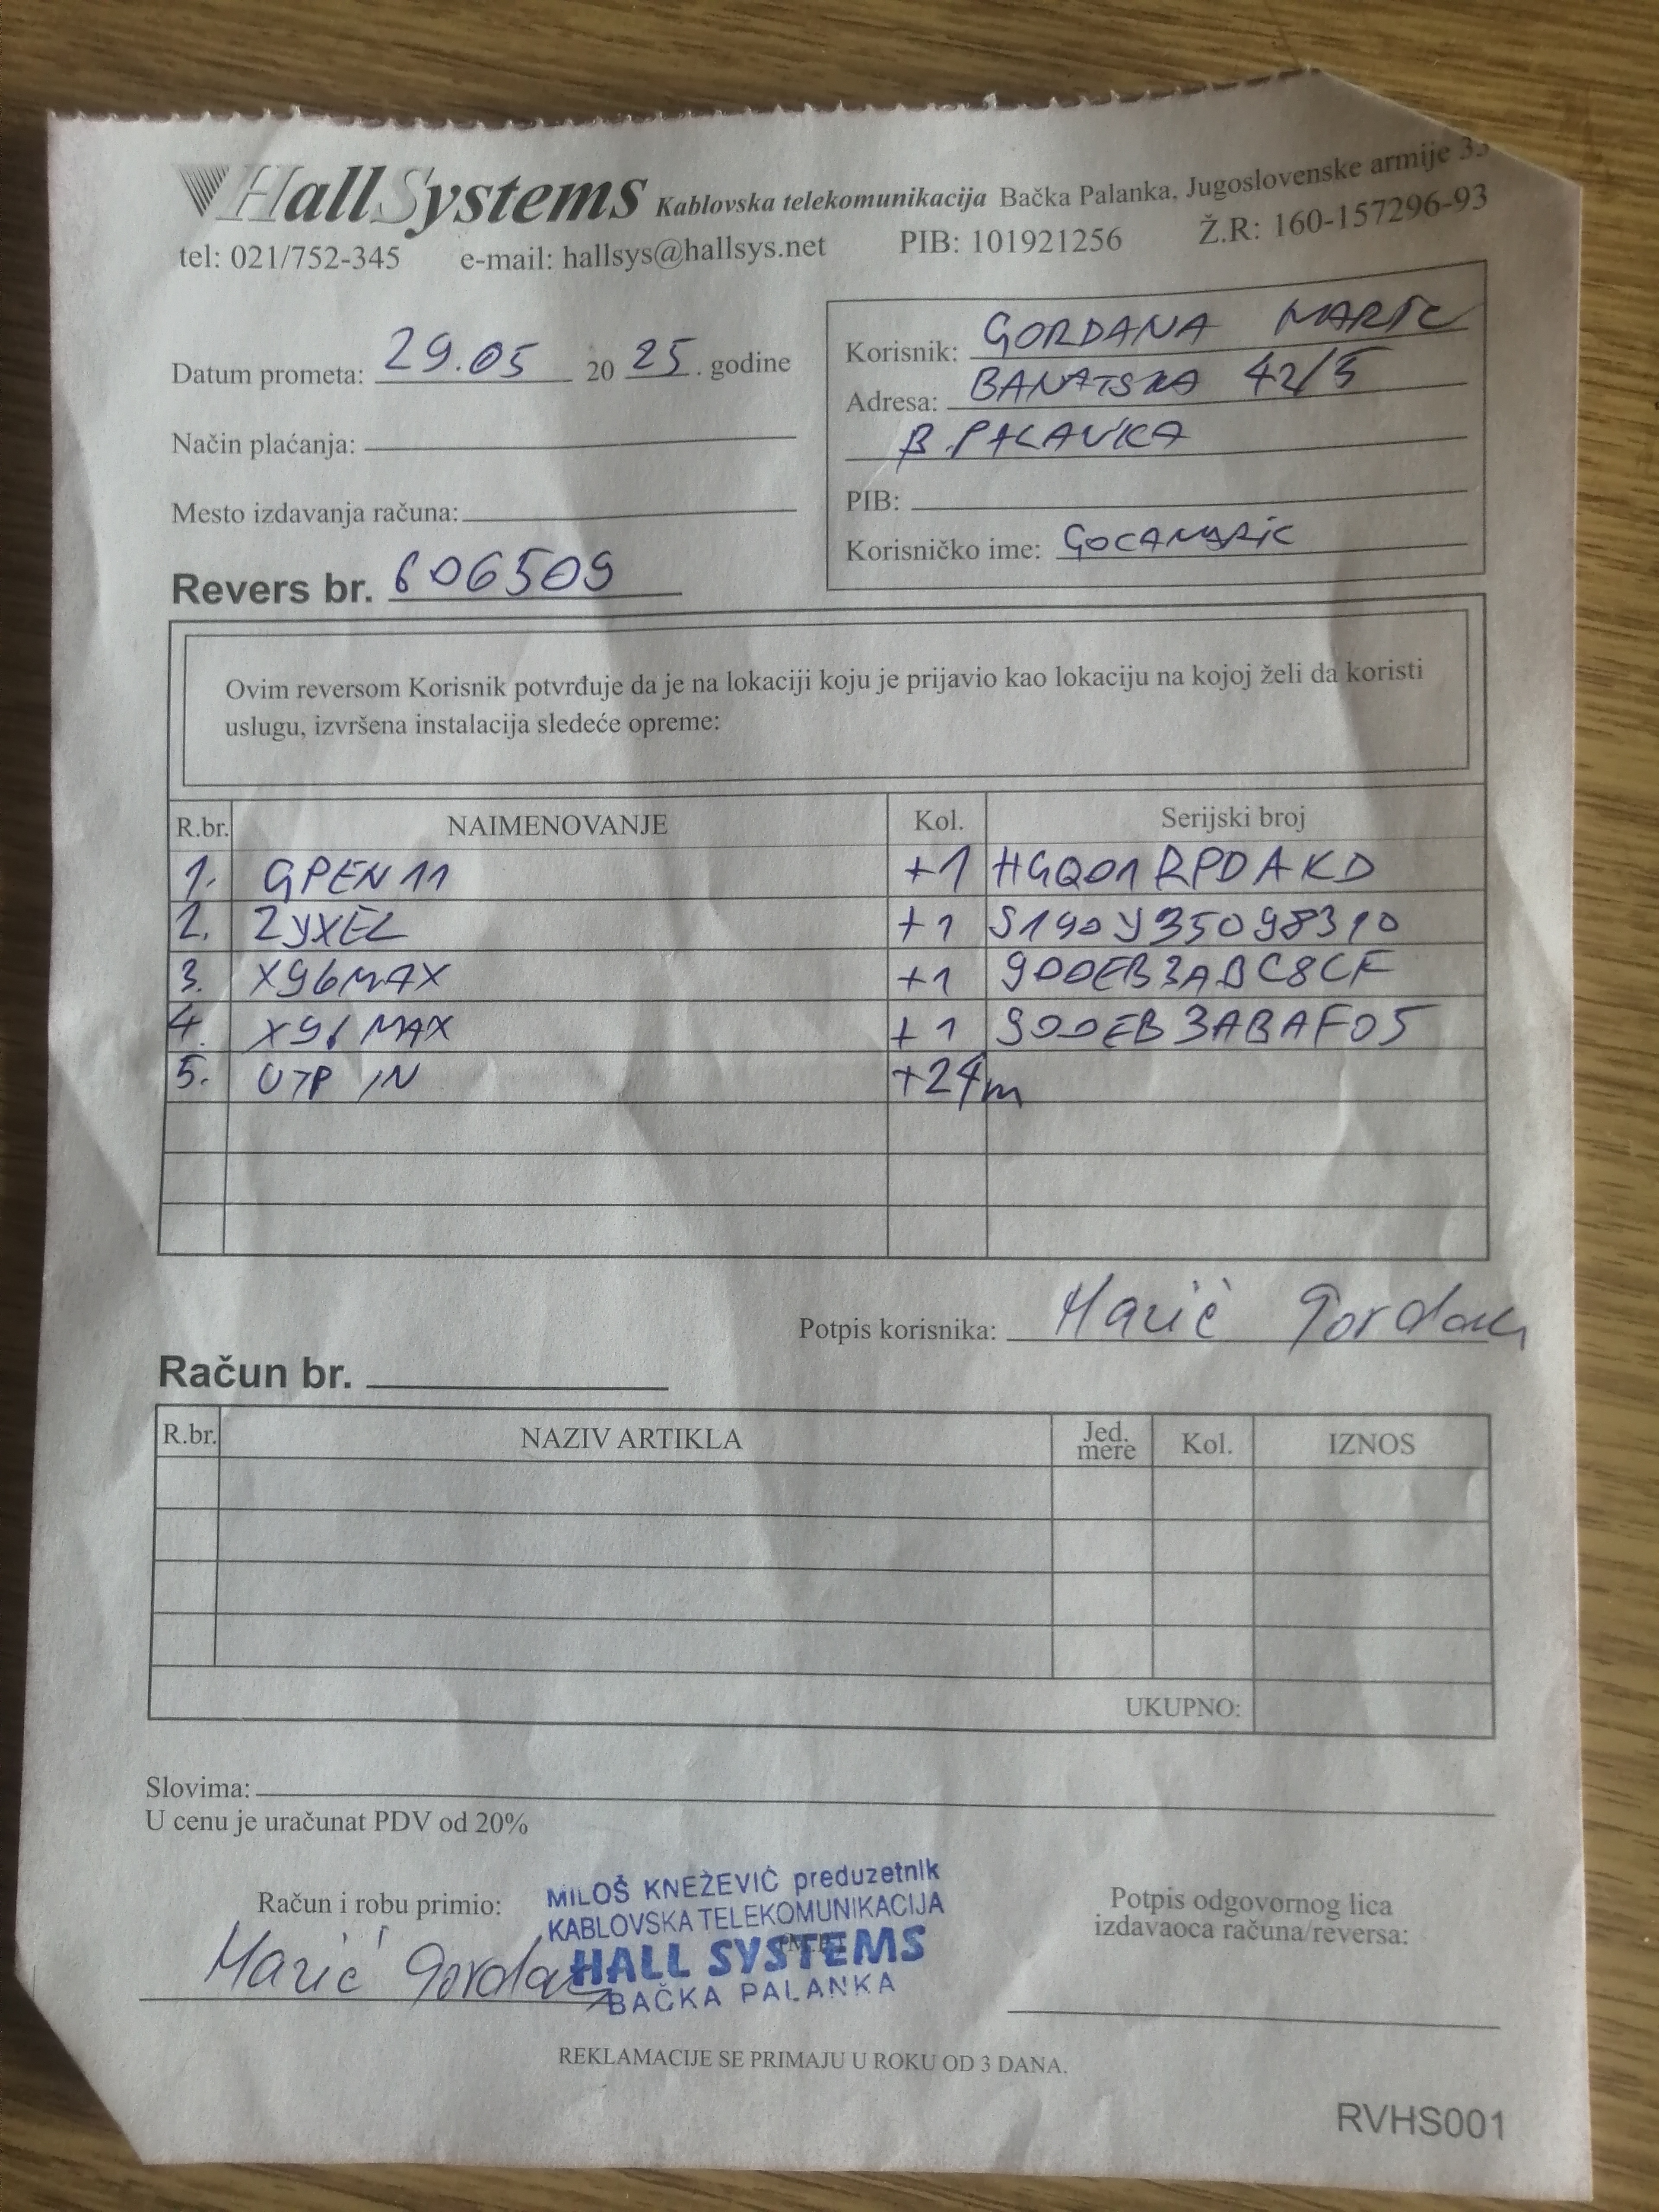 HallSystems Kablovska telekomunikacija Bačka Palanka, Jugoslovenske armije 33
tel: 021/752-345 e-mail: hallsys@hallsys.net PIB: 101921256 Ž.R: 160-157296-93
Datum prometa: 29.05 2025. godine
Način plaćanja:
Mesto izdavanja računa:
Revers br. 606509
Korisnik: GORDANA MARIĆ
Adresa: BANATSKA 42/5
B. PALANKA
PIB:
Korisničko ime: GOCAMARIC
Ovim reversom Korisnik potvrđuje da je na lokaciji koju je prijavio kao lokaciju na kojoj želi da koristi
uslugu, izvršena instalacija sledeće opreme:
R.br. NAIMENOVANJE Kol. Serijski broj
1. GPEN11 +1 HGQ01RPDAKD
2. ZYXEL +1 S190Y35098310
3. X96MAX +1 900EB3ABC8CF
4. X96 MAX +1 900EB3ABAF05
5. UTP IN +24m
Potpis korisnika: Marić Gordana
Račun br.
R.br. NAZIV ARTIKLA Jed. mere Kol. IZNOS
UKUPNO:
Slovima:
U cenu je uračunat PDV od 20%
Račun i robu primio:
Marić Gordana
MILOŠ KNEŽEVIĆ preduzetnik
KABLOVSKA TELEKOMUNIKACIJA
HALL SYSTEMS
BAČKA PALANKA
Potpis odgovornog lica
izdavaoca računa/reversa:
REKLAMACIJE SE PRIMAJU U ROKU OD 3 DANA.
RVHS001